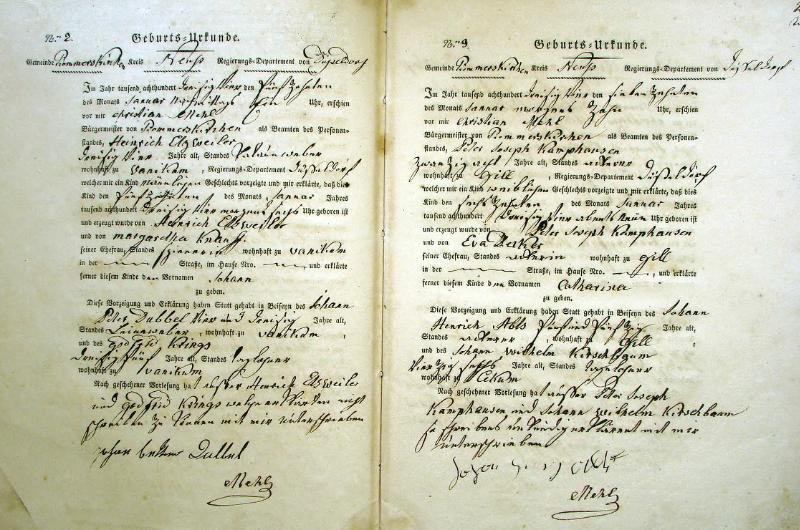 No. 2. Geburts-Urkunde.
Gemeinde Rommerskirchen Kreis Neuss Regierungs-Departement von Düsseldorf
Im Jahr tausend, achthundert dreisig vier den fünfzehnten
des Monats Januar nachmittags Uhr, erschien
vor mir Christian Mehl
Bürgermeister von Rommerskirchen als Beamten des Personen-
standes, Heinrich Elsweiler
dreisig vier Jahre alt, Standes
wohnhaft zu Vanikum, Regierungs-Departement Düsseldorf
welcher mir ein Kind männlichen Geschlechts vorzeigte und mir erklärte, daß dies
Kind den fünfzehnten des Monats Januar Jahres
tausend achthundert dreisig vier morgens sechs Uhr geboren ist
und erzeugt wurde von Heinrich Elsweiler
und von Margaretha
seiner Ehefrau, Standes wohnhaft zu Vanikum
in der Straße, im Hause Nro. , und erklärte
ferner diesem Kinde den Vornamen Johann
zu geben.
Diese Vorzeigung und Erklärung haben Statt gehabt in Beiseyn des Johann
Peter Dubbel vier und dreisig Jahre alt,
Standes Leinenweber, wohnhaft zu Vanikum,
und des Godfrid Krings
dreisig fünf Jahre alt, Standes Taglöhner
wohnhaft zu Vanikum
Nach geschehener Vorlesung hat ausser Henrich Elsweiler
und Godfrid Krings welche erklärten nicht
schreiben zu können mit mir unterschrieben
Mehl
No. 3. Geburts-Urkunde.
Gemeinde Rommerskirchen Kreis Neuss Regierungs-Departement von Düsseldorf
Im Jahr tausend, achthundert dreisig vier den siebenzehnten
des Monats Januar morgens zehn Uhr, erschien
vor mir Christian Mehl
Bürgermeister von Rommerskirchen als Beamten des Personen-
standes, Peter Joseph Kamphausen
zwanzig acht Jahre alt, Standes Ackerer
wohnhaft zu Gill, Regierungs-Departement Düsseldorf
welcher mir ein Kind weiblichen Geschlechts vorzeigte und mir erklärte, daß dies
Kind den sechszehnten des Monats Januar Jahres
tausend achthundert dreisig vier abends neun Uhr geboren ist
und erzeugt wurde von Peter Joseph Kamphausen
und von Eva
seiner Ehefrau, Standes Ackerin wohnhaft zu Gill
in der Straße, im Hause Nro. , und erklärte
ferner diesem Kinde den Vornamen Catharina
zu geben.
Diese Vorzeigung und Erklärung haben Statt gehabt in Beiseyn des Johann
Henrich fünf und fünfzig Jahre alt,
Standes Ackerer, wohnhaft zu Gill
und des Johann Wilhelm Kirschbaum
vierzig sechs Jahre alt, Standes Tagelöhner
wohnhaft zu
Nach geschehener Vorlesung hat ausser Peter Joseph
Kamphausen und Johann Wilhelm Kirschbaum
so schreibens unkundig erklärent mit mir
unterschrieben
Mehl